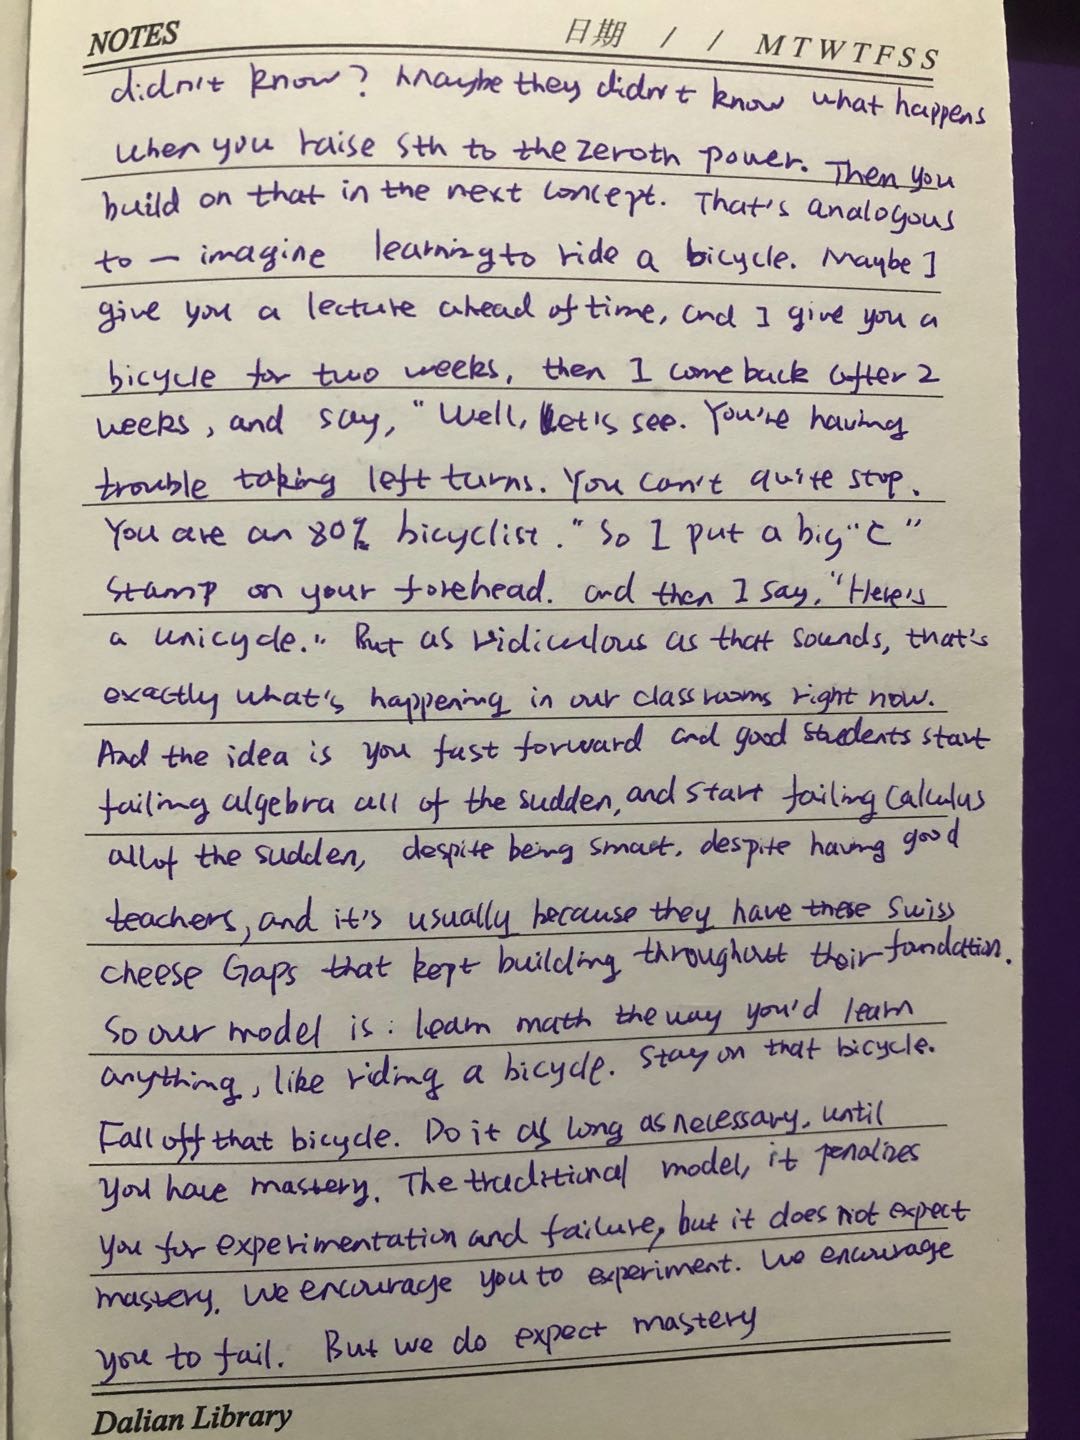 NOTES
日期 / / M T W T F S S
didn't know? Maybe they didn't know what happens
when you raise sth to the zeroth power. Then you
build on that in the next concept. That's analogous
to — imagine learning to ride a bicycle. Maybe I
give you a lecture ahead of time, and I give you a
bicycle for two weeks, then I come back after 2
weeks, and say, "Well, Let's see. You're having
trouble taking left turns. You can't quite stop.
You are an 80% bicyclist." So I put a big "C"
stamp on your forehead. and then I say, "Here's
a unicycle." But as ridiculous as that sounds, that's
exactly what's happening in our classrooms right now.
And the idea is you fast forward and good students start
failing algebra all of the sudden, and start failing calculus
all of the sudden, despite being smart, despite having good
teachers, and it's usually because they have these Swiss
cheese Gaps that kept building throughout their foundation.
So our model is: learn math the way you'd learn
anything, like riding a bicycle. Stay on that bicycle.
Fall off that bicycle. Do it as long as necessary, until
you have mastery. The traditional model, it penalizes
you for experimentation and failure, but it does not expect
mastery. We encourage you to experiment. We encourage
you to fail. But we do expect mastery
Dalian Library